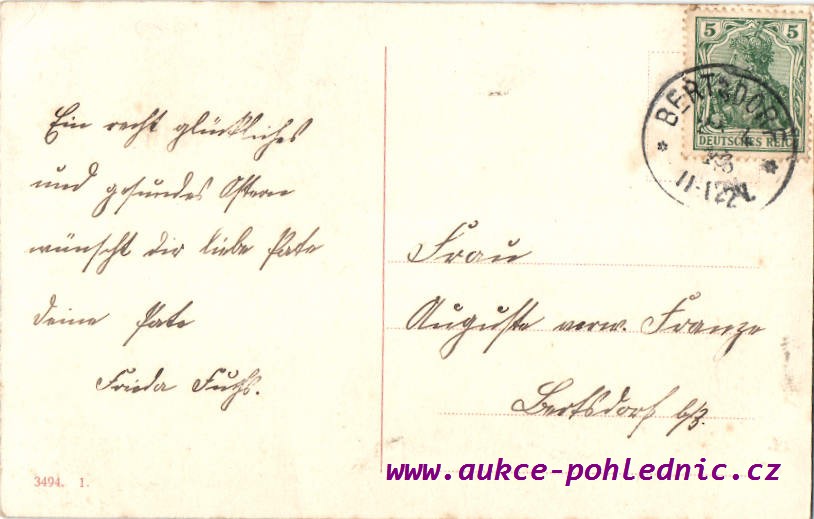 Ein recht glückliches
und gesundes Ostern
wünscht dir liebe Pate
deine Pate
Frieda Fuchs.
3494. 1.
5 5
DEUTSCHES REICH
* BERTSDORF *
11-12 V.
Frau
Auguste verw. Franze
Bertsdorf b/Z.
www.aukce-pohlednic.cz